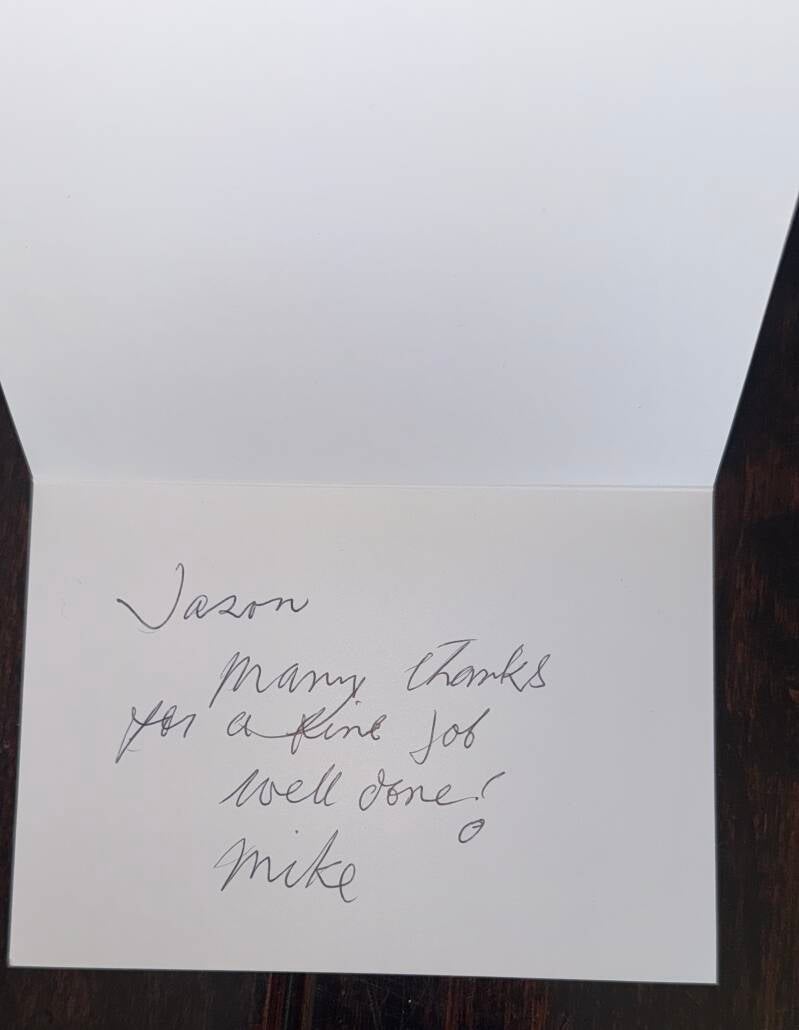 Jason
Many thanks
for a fine job
well done!
Mike